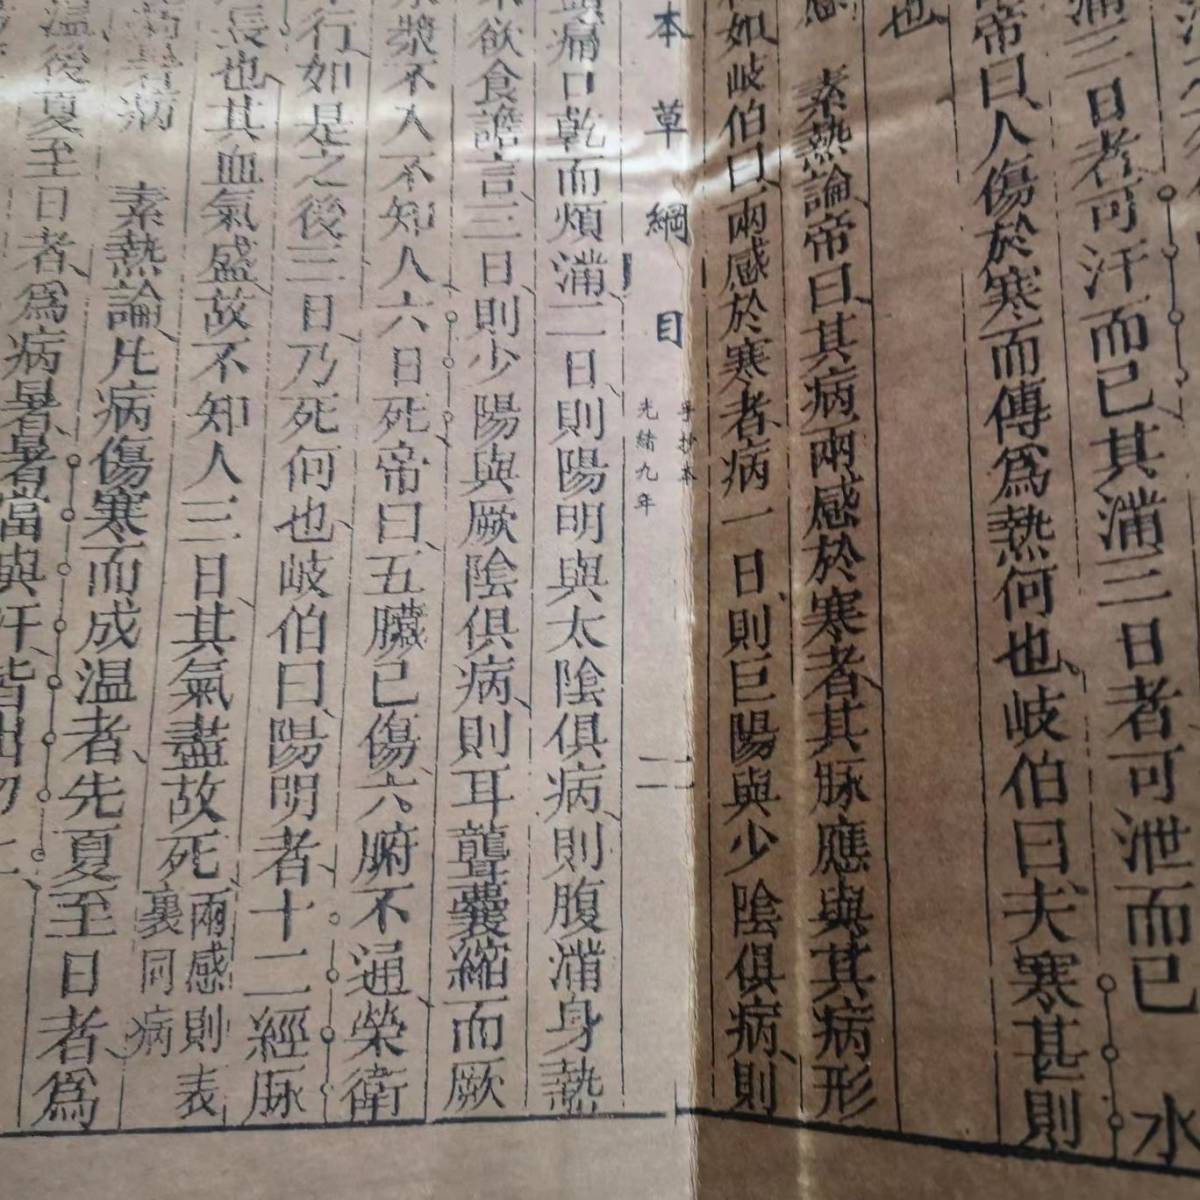 滿三日者可汗而已其滿三日者可泄而已 水
帝曰人傷於寒而傳爲熱何也岐伯曰夫寒甚則
也
素熱論帝曰其病兩感於寒者其脉應與其病形
如岐伯曰兩感於寒者病一日則巨陽與少陰俱病則
本草綱目
手抄本
光緒九年
二
頭痛口乾而煩滿二日則陽明與太陰俱病則腹滿身熱
不欲食譫言三日則少陽與厥陰俱病則耳聾囊縮而厥
水漿不入不知人六日死帝曰五臟已傷六腑不通榮衛
不行如是之後三日乃死何也岐伯曰陽明者十二經脉
之長也其血氣盛故不知人三日其氣盡故死兩感則表
裏同病
病 素熱論凡病傷寒而成温者先夏至日者爲
温後夏至日者爲病暑暑當與汗皆出勿止